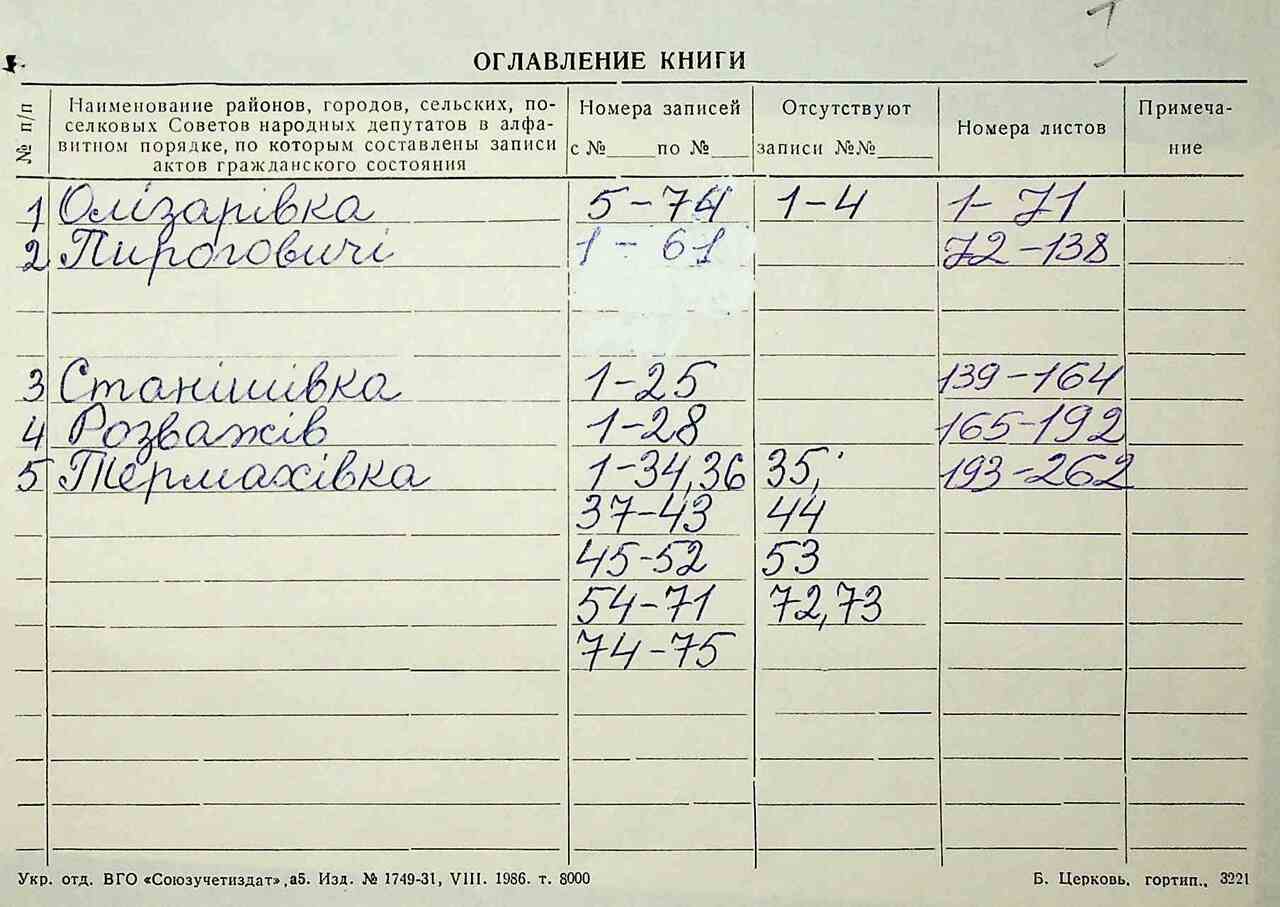 1
ОГЛАВЛЕНИЕ КНИГИ
№ п/п
Наименование районов, городов, сельских, по-
селковых Советов народных депутатов в алфа-
витном порядке, по которым составлены записи
актов гражданского состояния
Номера записей
с №____по №____
Отсутствуют
записи №№____
Номера листов
Примеча-
ние
1 Олізарівка 5-74 1-4 1-71
2 Пироговичі 1-61 72-138
3 Станішівка 1-25 139-164
4 Розважів 1-28 165-192
5 Термахівка 1-34,36 35, 193-262
37-43 44
45-52 53
54-71 72,73
74-75
Укр. отд. ВГО «Союзучетиздат», а5. Изд. № 1749-31, VIII. 1986. т. 8000
Б. Церковь, гортип., 3221